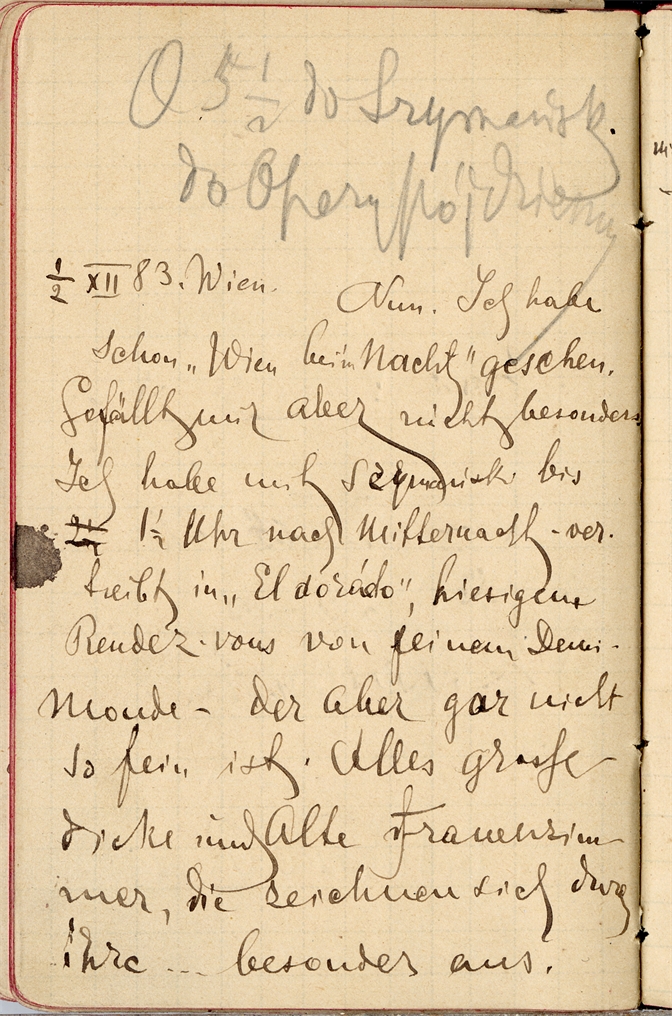 O 5 1/2 do Szymańsk.
do Opery pójdziemy
1/2 XII 83. Wien. Nun. Ich habe
schon „Wien beim Nacht" gesehen.
Gefällt mir aber nicht besonders
Ich habe mit Szymański bis
1 1/2 Uhr nach Mitternacht - ver-
treibt in „Eldorádo", hiesigem
Rendez-vous von feinem Demi-
Monde - der aber gar nicht
so fein ist. Alles grosse
dicke und Alte Frauenzim-
mer, die zeichnen sich durch
ihre ... besonder aus.